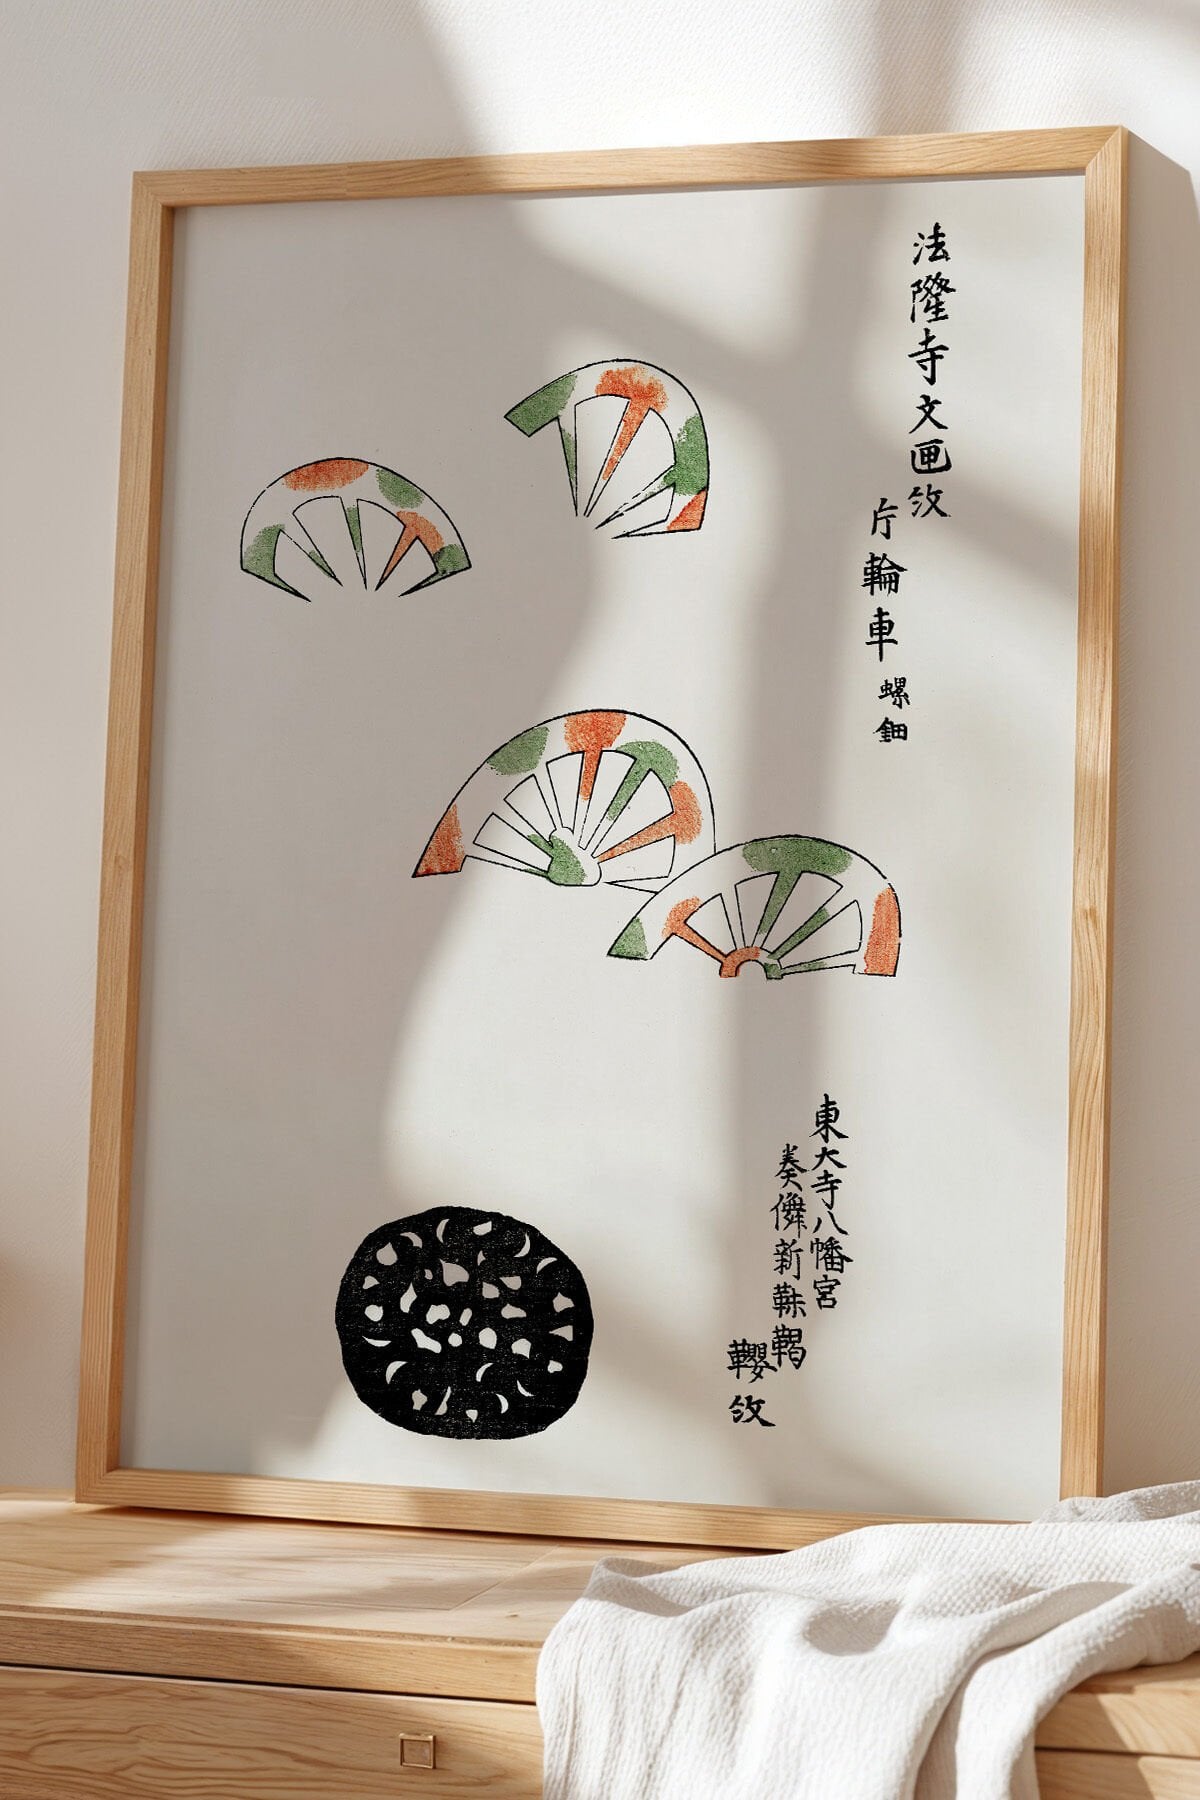 法隆寺文匣紋
片輪車
螺鈿
東大寺八幡宮
奏儛新靺鞨
紋